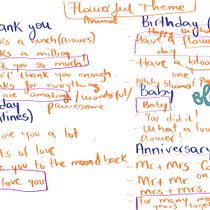 Flowerful Theme
Animal
ank you
ks a bunch (flowers)
ks a million
k you so much!
ll thank you enough
ks for everything
are amazing / wonderful /
pawesome
day
ntines)
ve you a lot
ts of love
e you to the moon & back
love you
Birthday (
Happy
Have a flower
day
Have a bloo
one
Baby
Baby!
You did i
What a lov
flower
Anniversary
Mr + Mrs
Mr + Mr
Mrs + Mrs
for many mo
years together